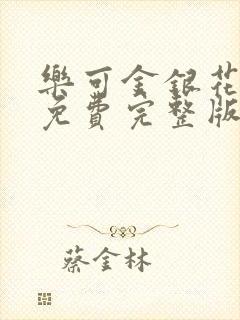 樂可金銀花
免費完整版
蔡金林